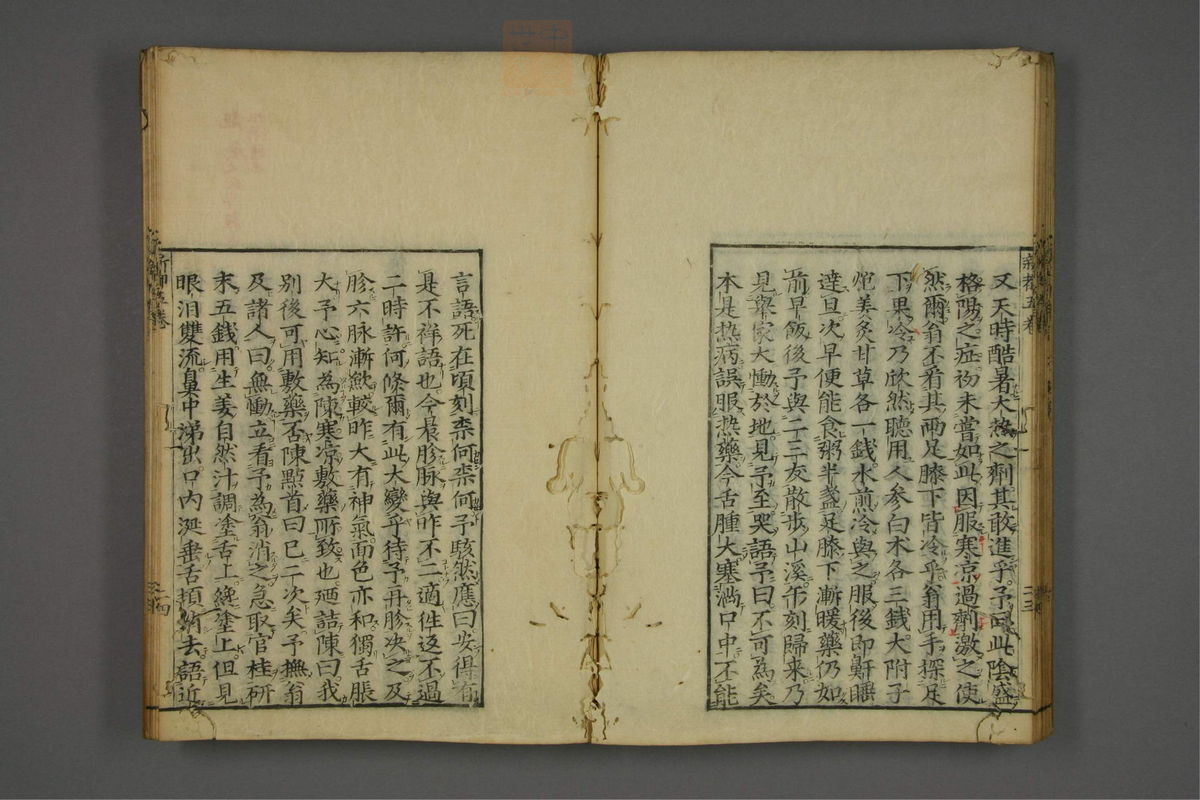 又天時酷暑大熱之劑其敢進乎予曰此陰盛
格陽之症初未嘗如此因服寒涼過劑激之使
然爾翁不看其兩足膝下皆冷乎翁用手探足
下果冷乃欣然聽用人参白朮各三錢大附子
炮姜炙甘草各一錢水煎冷與之服後即鼾睡
達旦次早便能食粥半盞足膝下漸暖藥仍如
前早飯後予與二三友散步山溪午刻歸来乃
見舉家大慟於地見予至哭語予曰不可為矣
本是热病誤服热藥今舌腫大塞滿口中不能
言語死在頃刻柰何柰何予駭然應曰安得有
是不祥語也今晨胗脉與昨不二適徃返不過
二時許何倐爾有此大變乎待予再胗决之及
胗六脉漸歛較昨大有神氣面色亦和獨舌脹
大予心知為陳寒凉敷藥所致也廼詰陳曰我
别後可用敷藥否陳點首曰已二次矣予撫翁
及諸人曰無慟立看予為翁消之急取官桂研
末五錢用生姜自然汁調塗舌上纔塗上但見
眼泪雙流鼻中涕出口内涎垂舌頓消去語近